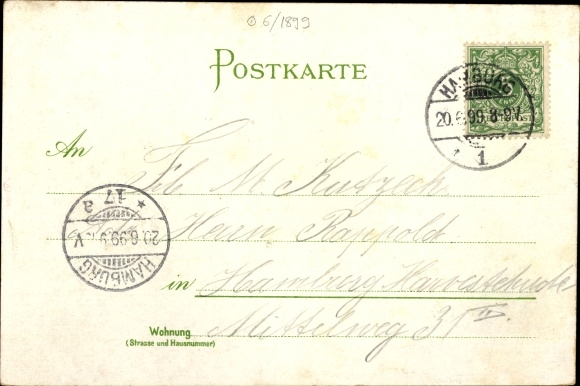 06/1899
POSTKARTE
HAMBURG
20.6.99.8-9V.
1
An
Frl. M. Kutzeck
Herrn Rappold.
17 a
20.6.99.9 V
HAMBURG
in Hamburg Harvestehude
Wohnung
(Strasse und Hausnummer)
Mittelweg 31 IV.